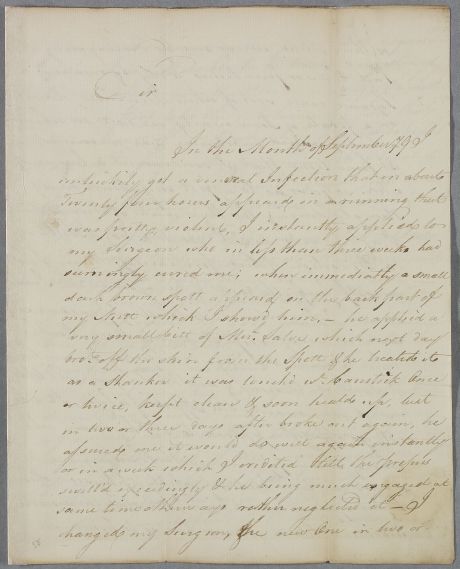 Sir
In the Month of September 79 I
unluckily got a venereal Infection that in about
Twenty four hours appeard in a running that
was pretty violent, I instantly applied to
my Surgeon who in less than three weeks had
seemingly cured me; when immediately a small
dark brown spott appeard on the back part of
my which I showd him, — he applied a
very small bitt of Salve which next day
bro.t off the skin from the Spott & he treated it
as a Shanker it was touch'd w.t Caustick Once
or twice, kept clean & soon heald up, but
in two or three days after broke out again, he
assured me it would do well again instantly
or in a week which I credited till the prepus
swell'd exceedingly & he being much engaged at
same time otherways rather neglected it — I
changed my Surgeon, the new One in two or